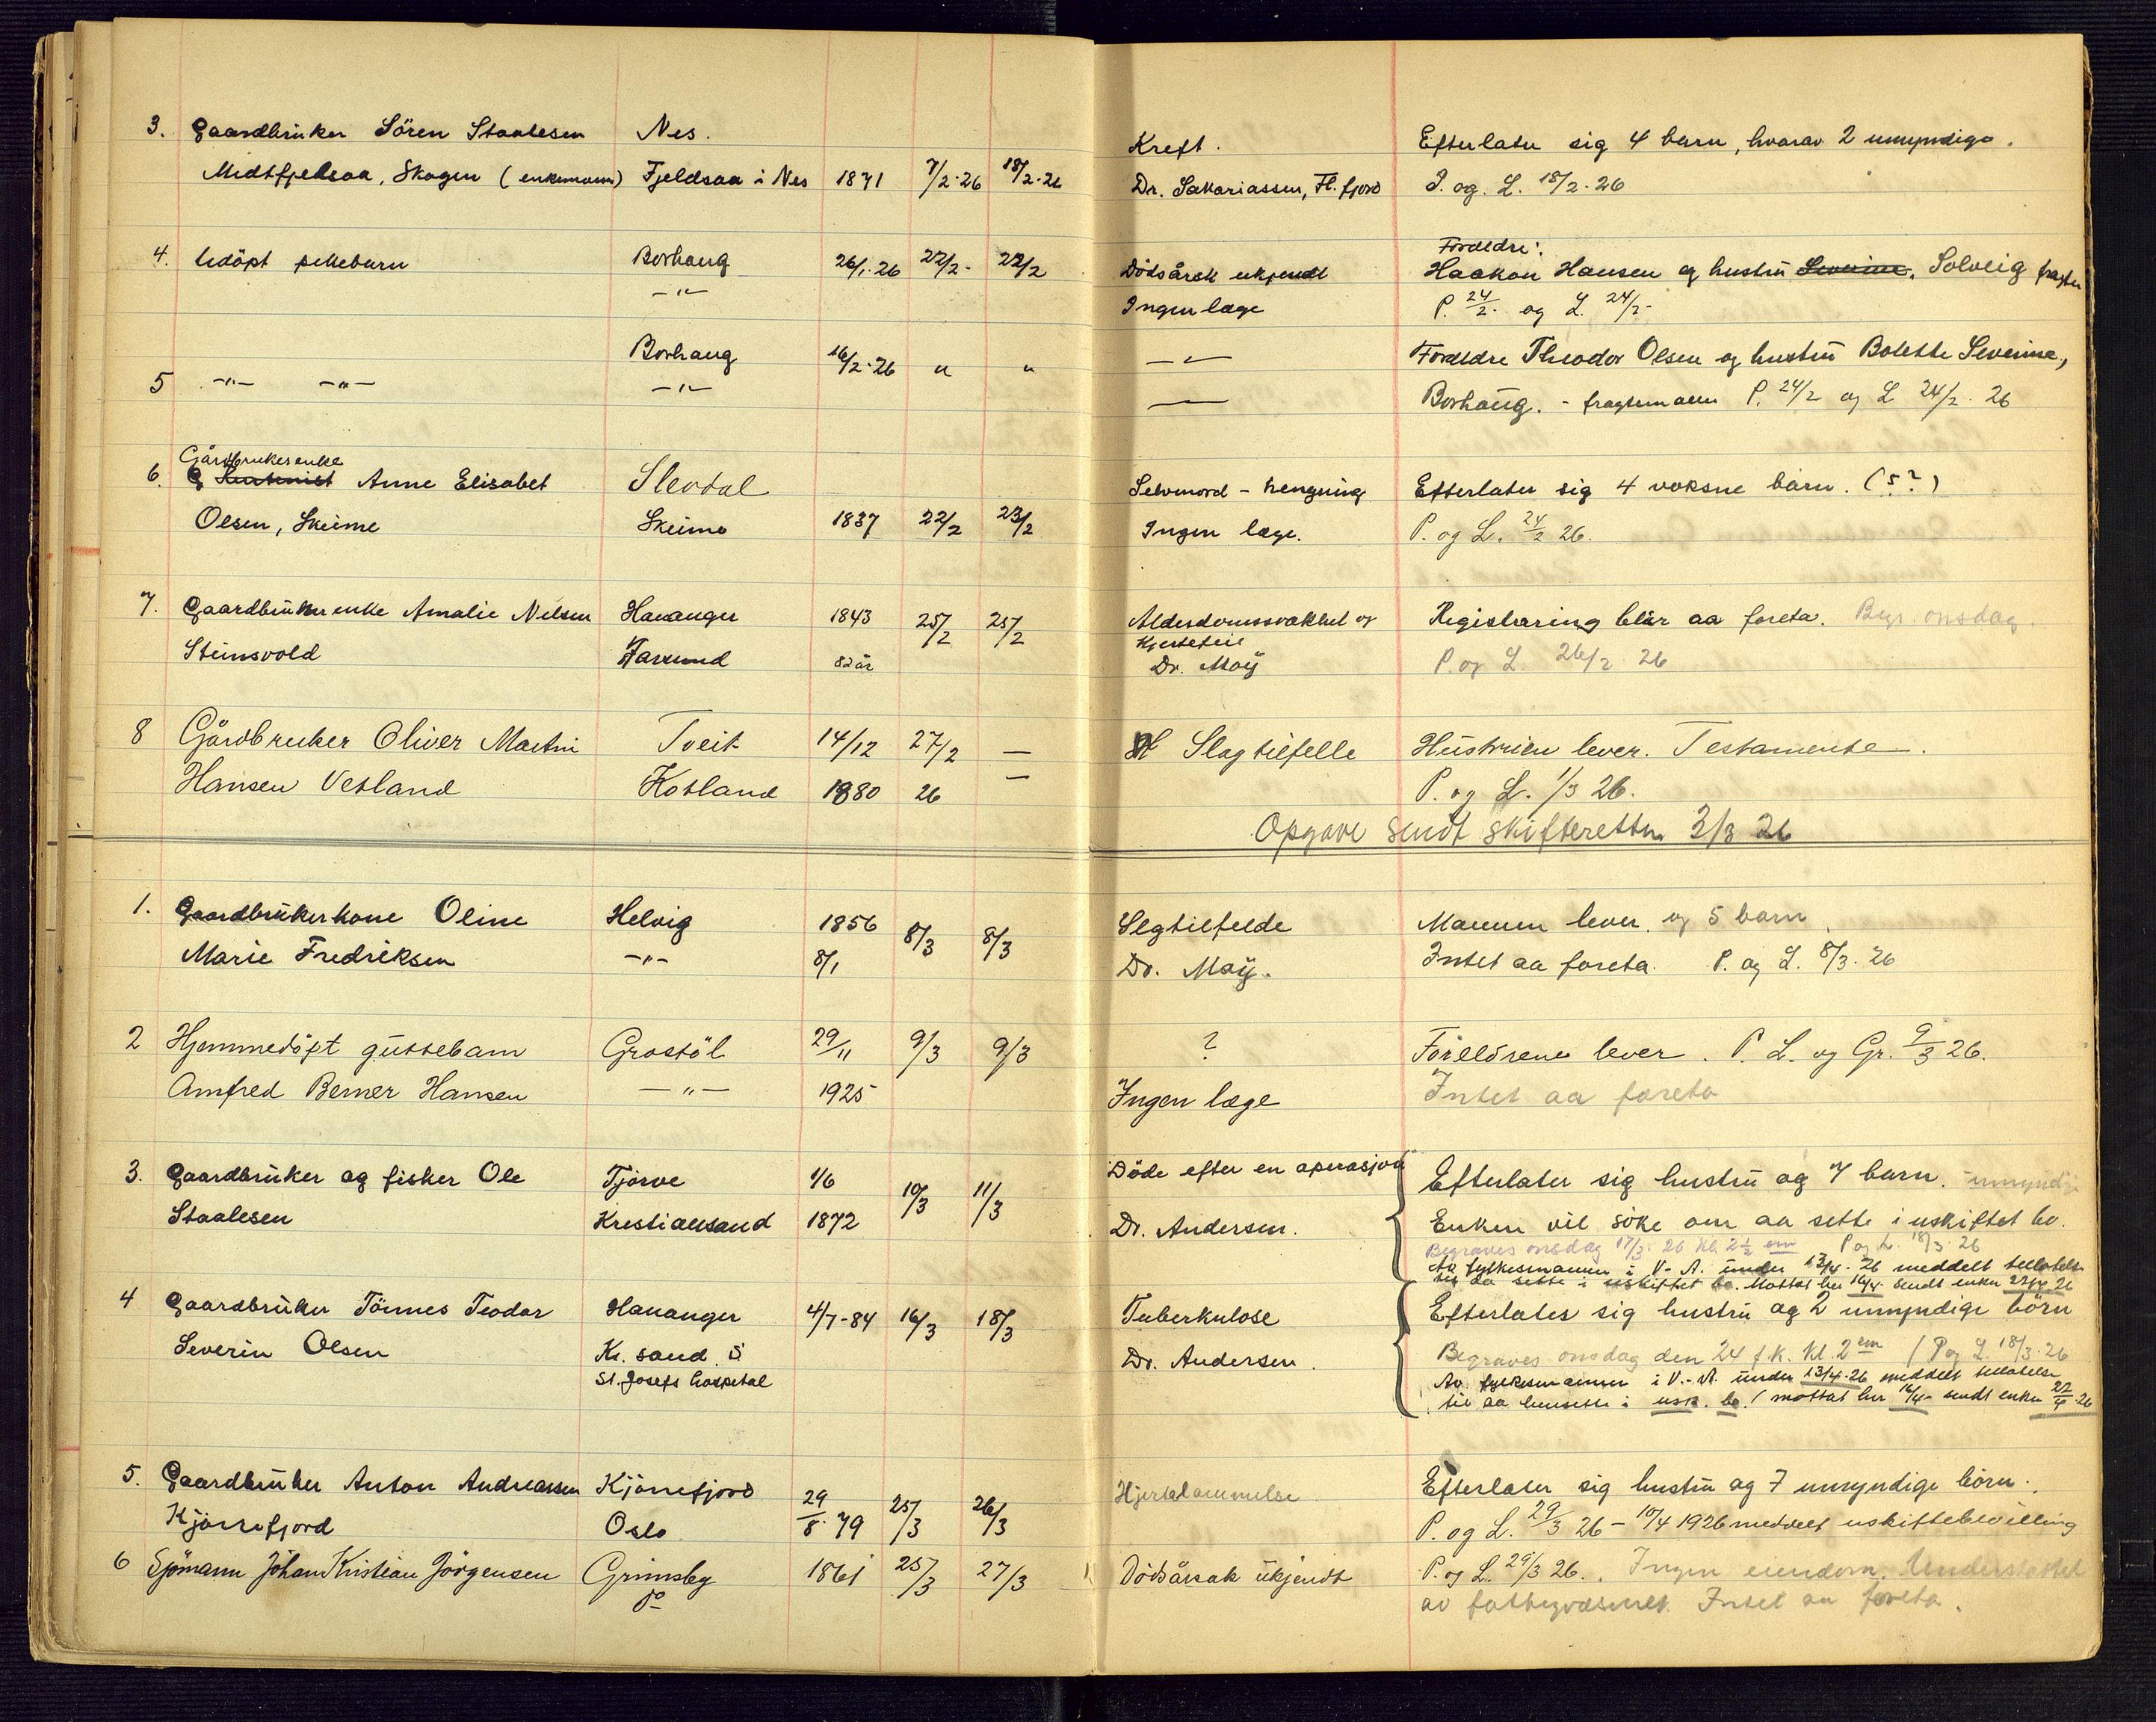 3. Gaardbruker Sören Staalesen Nes. Kreft. Efterlater sig 4 barn, hvorav 2 umyndige.
Midtfjeldsaa, Skogen (enkemann) Fjeldsaa i Nes 1871 7/2-26 18/2-26 Dr. Sakariassen, Fl.fjord P. og. L. 18/2-26
4. Udöpt pikebarn Borhaug 26/1-26 22/2- 22/2 Dödsårsk ukjendt Foreldre: Haakon Hansen og hustru Severine, Solveig
-"- Ingen læge P. 24/2. og L. 24/2-
Borhaug 16/2-26 " " -"- Foreldre Theodor Olsen og hustru Bolette Severine,
5 -"- -"- -"- — Borhaug. - fragtemann P. 24/2 og L 24/2. 26
Gårdbrukerenke
6. G Anne Elisabet Slevdal Selvmord - hengning Efterlater sig 4 voksne barn. (5?)
Olsen, Skeime Skeime 1837 22/2 23/2 Ingen læge. P. og L. 24/2 26.
7. Gaardbrukerenke Amalie Nilsen Hananger 1843 25/2 25/2 Alderdomssvakhet og Registrering blir aa foreta. Begr. onsdag.
Hjertefeil
Steinsvold Farsund 82 år Dr. Moÿ P. og L 26/2 26
8 Gårdbruker Oliver Martin Tveit 14/12 27/2 — Slagtilfelle Hustruen lever. Testamente.
Hansen Vetland Kotland 1880 26 — P. og L. 1/3 26.
Opgave sendt skifteretten 2/3 26
1. Gaardbrukerkone Oline Helvig 1856 8/3 8/3 Slgtilfelde Mannen lever, og 5 barn
Marie Fredriksen -"- 8/1 Dr. Moÿ. Intet aa foreta. P. og L. 8/3. 26
2 Hjemmedöpt guttebarn Grostöl 29/11 9/3 9/3 ? Foreldrene lever. P. L. og Gr. 9/3 26.
Arnfred Berner Hansen -"- 1925 Ingen læge Intet aa foreta
3. Gaardbruker og fisker Ole Tjörve 1/6 10/3 11/3 Döde efter en operasjon Efterlater sig hustru og 7 barn. umyndige
Staalesen Kristiansand 1872 Dr. Andersen. Enken vil söke om aa sitte i uskiftet bo.
Begraves onsdag 17/3. 26 kl. 2½ em P og L. 18/3. 26
Av fylkesmannen i V.-A. under 13/4. 26 meddelt tillatelse
til aa sitte i uskiftet bo. Mottat her 16/4. sendt enken 22/4 26
4 Gaardbruker Tönnes Teodor Hananger 4/7-84 16/3 18/3 Tuberkulose Efterlater sig hustru og 2 umyndige börn
Severin Olsen Kr. sand. S Dr. Andersen. Begraves onsdag den 24 f.k. kl. 2 em / P og L. 18/3. 26
St. Josefs hospital Av fylkesmannen i V.-A. under 13/4-26 meddelt tillatelse
til aa hensitte i usk. bo. / mottat her 16/4- sendt enken 22/4-26
5. Gaardbruker Anton Andreassen Kjörrefjord 29/8. 79 25/3 26/3 Hjertelammelse Efterlater sig hustru og 7 umyndige börn.
Kjörrefjord Oslo P. og L. 29/3 26 - 10/4 1926 meddelt uskiftebevilling
6 Sjömann Johan Kristian Jörgensen Grimsby 1861 25/3 27/3 Dödsårsak ukjendt P. og L. 29/3 26. Ingen eiendom. Understöttet
do av fattigvæsenet. Intet aa foreta.